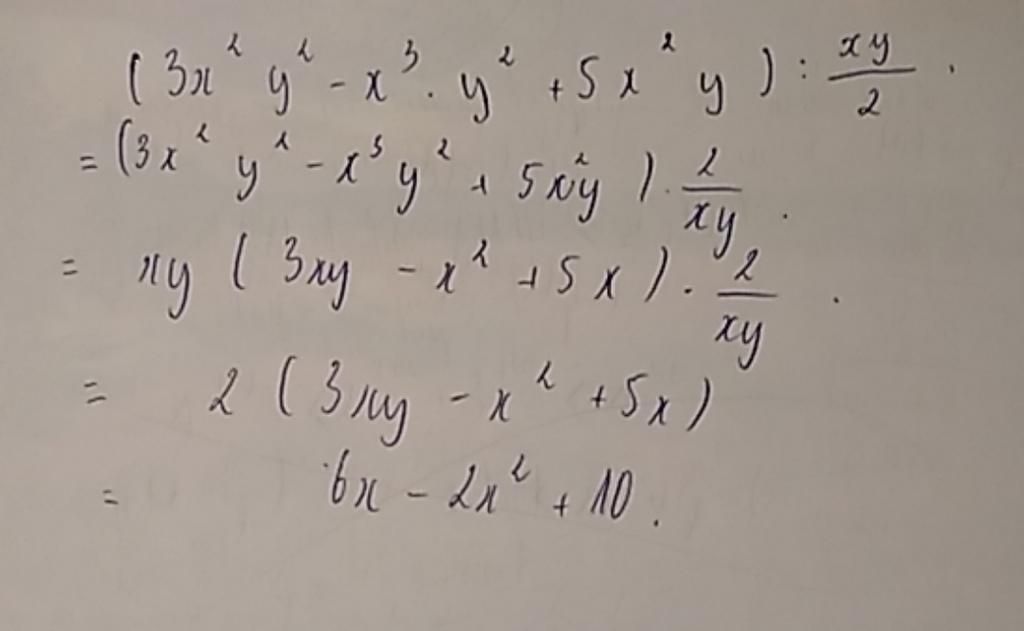 (3x² y² - x³ . y² + 5x² y) : xy/2 .
= (3x² y² - x³y² + 5x²y) . 2/xy .
= xy (3xy - x² + 5x) . 2/xy .
= 2 (3xy - x² + 5x)
= 6x - 2x² + 10.